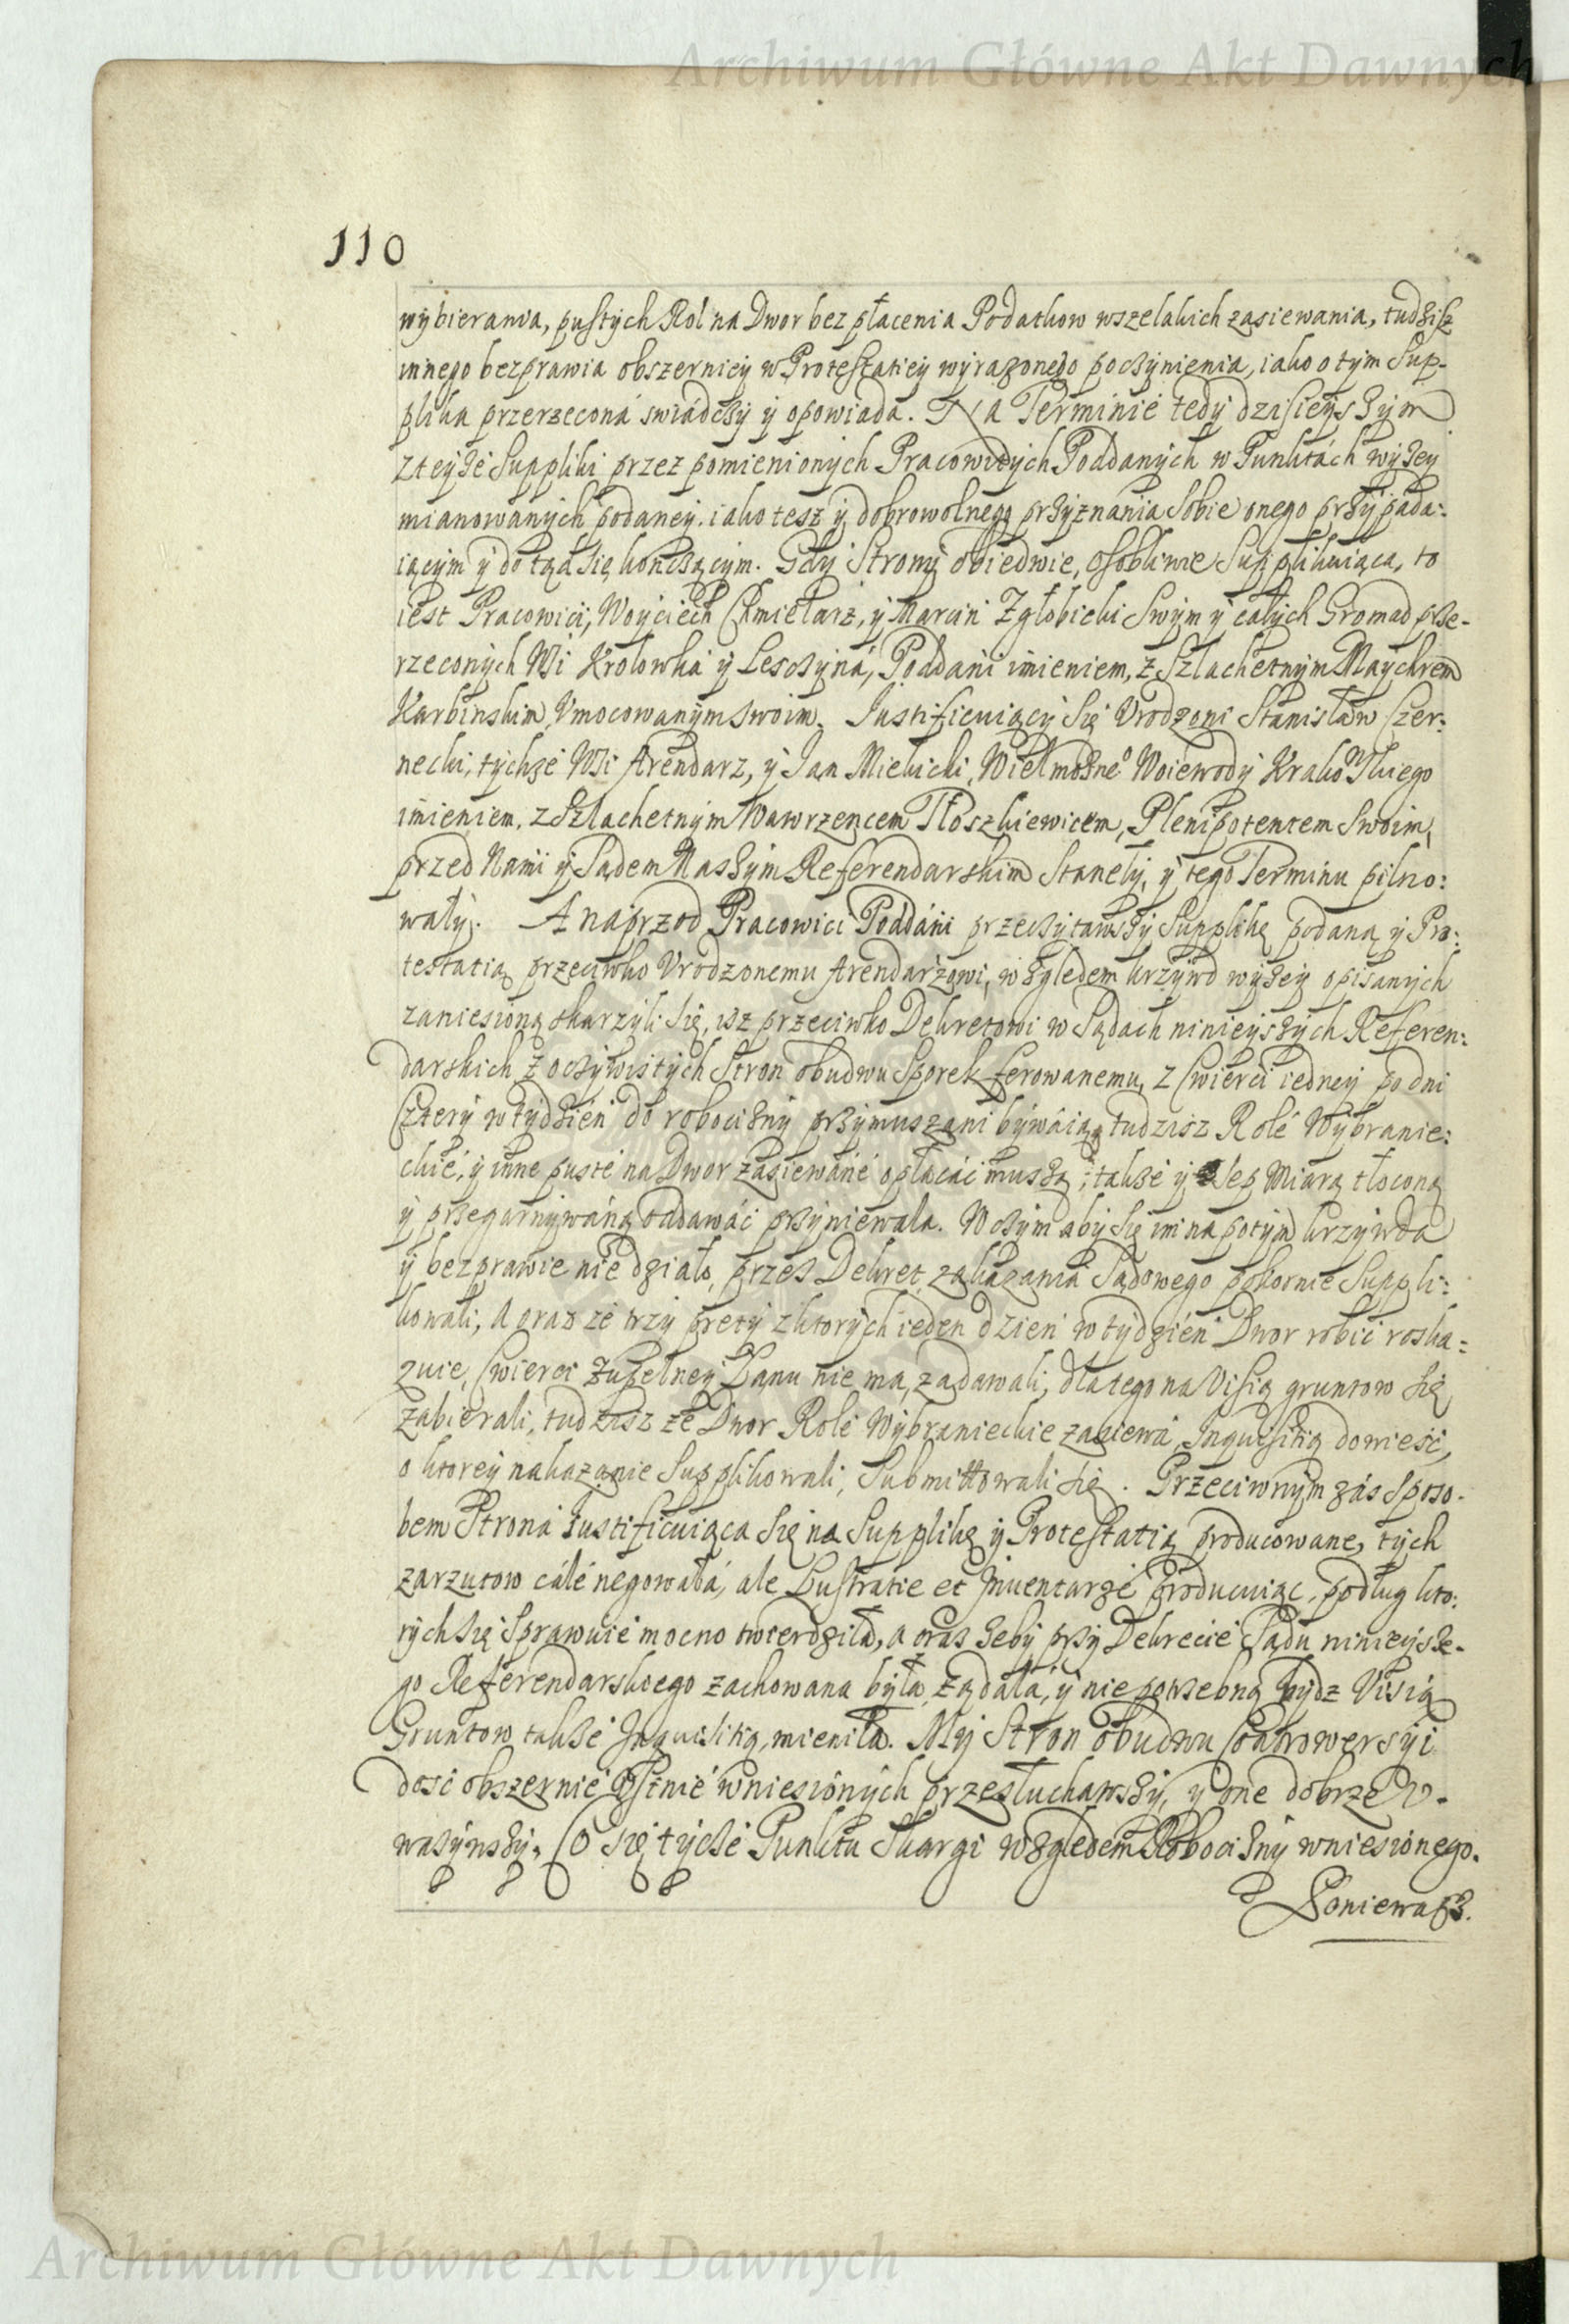 Archiwum Główne Akt Dawnych
110
wybierania, pustych Rol na Dwor bez płacenia Podatkow wszelakich zasiewania, tudzisz
innego bezprawia obszerniey w Protestatiey wyrazonego poczynienia, iako o tym Sup-
plika przerzeconá swiádczy y opowiada. Na Terminie tedy dzisieyszym
z teyże Suppliki przez pomienionych Pracowitych Poddanych w Punktách wyżey
mianowanych podaney. iako tesz y dobrowolnego przyznania Sobie onego przypada:
iącym y dotąd się kończącym. Gdy Strony obiedwie, osobliwie Supplikuiąca, to
iest Pracowici, Woyciech Chmielarz, y Marcin Zgłobicki Swym y całych Gromad prze-
rzeconych Wsi Krolowka y Lesczyná, Poddani imieniem, z Szlachetnym Maychrem
Karbinskim Vmocowanym swoim. Iustificuiący się Vrodzoni Stanisław Czer:
necki, tychże Wsi Arendarz, y Jan Mielicki, Wielmożneo Woiewody Krakowskiego
imieniem, z Szlachetnym Wawrzencem Tłoszkiewicem, Plenipotentem Swoim,
przed Nami y Sądem Naszym Referendarskim Stanely, y tego Terminu pilno:
wały. A naprzod Pracowici Poddáni przeczytawszy Supplikę podaną y Pro:
testatią przeciwko Vrodzonemu Arendarzowi, względem krzywd wyżey opisanych
zaniesioną skarzyli się, isz przeciwko Dekretowi w Sądach ninieyszych Referen:
darskich z oczywistych Stron obudwu Sporek ferowanemu, z Cwierci iedney po dni
Cztery w tydzień do robocizny przymuszani bywáią, tudzisz Rolé Wybranie:
ckié, y inne pusté na Dwor zasiewáné opłacáć muszą; także y Sep Miarą tłoconą
y przegarnywáną oddawáć przyniewala. W czym aby się im na potym krzywda
y bezprawie nie działo, przes Dekret zakazania Sądowego pokornie Suppli:
kowali, A oraz że trzy pręty z ktorych ieden dzień w tydzień Dwor robić roska:
zuie, Cwierci zupełney Łanu nie ma, zadawali, dlatego na Visią gruntow się
zabierali, tudzisz że Dwor Rolé Wybranieckie zasiewá, Inquisitią dowieść,
o ktorey nakazanie Supplikowali, Submittowali się. Przeciwnym zás sposo-
bem Strona Iustificuiąca się na Supplikę y Protestatią producowane, tych
zarzutow cálé negowałá, ale Lustratie et Inventarze producuiąc, podług kto:
rych się sprawuié mocno twierdziłá, a oraz żeby przy Dekrecie Sądu ninieysze-
go Referendarskoego zachowana była, żądałá, y nie potrzebną bydz Visią
Gruntow także Inquisitią, mieniła. My Stron obudwu Controwersyi
dosć obszernie Ustnie wniesionych przesłuchawszy, y one dobrze v-
ważywszy. Co się tycze Punktu Skargi względem Robocizny wniesionego.
Poniewasz.
Archiwum Główne Akt Dawnych